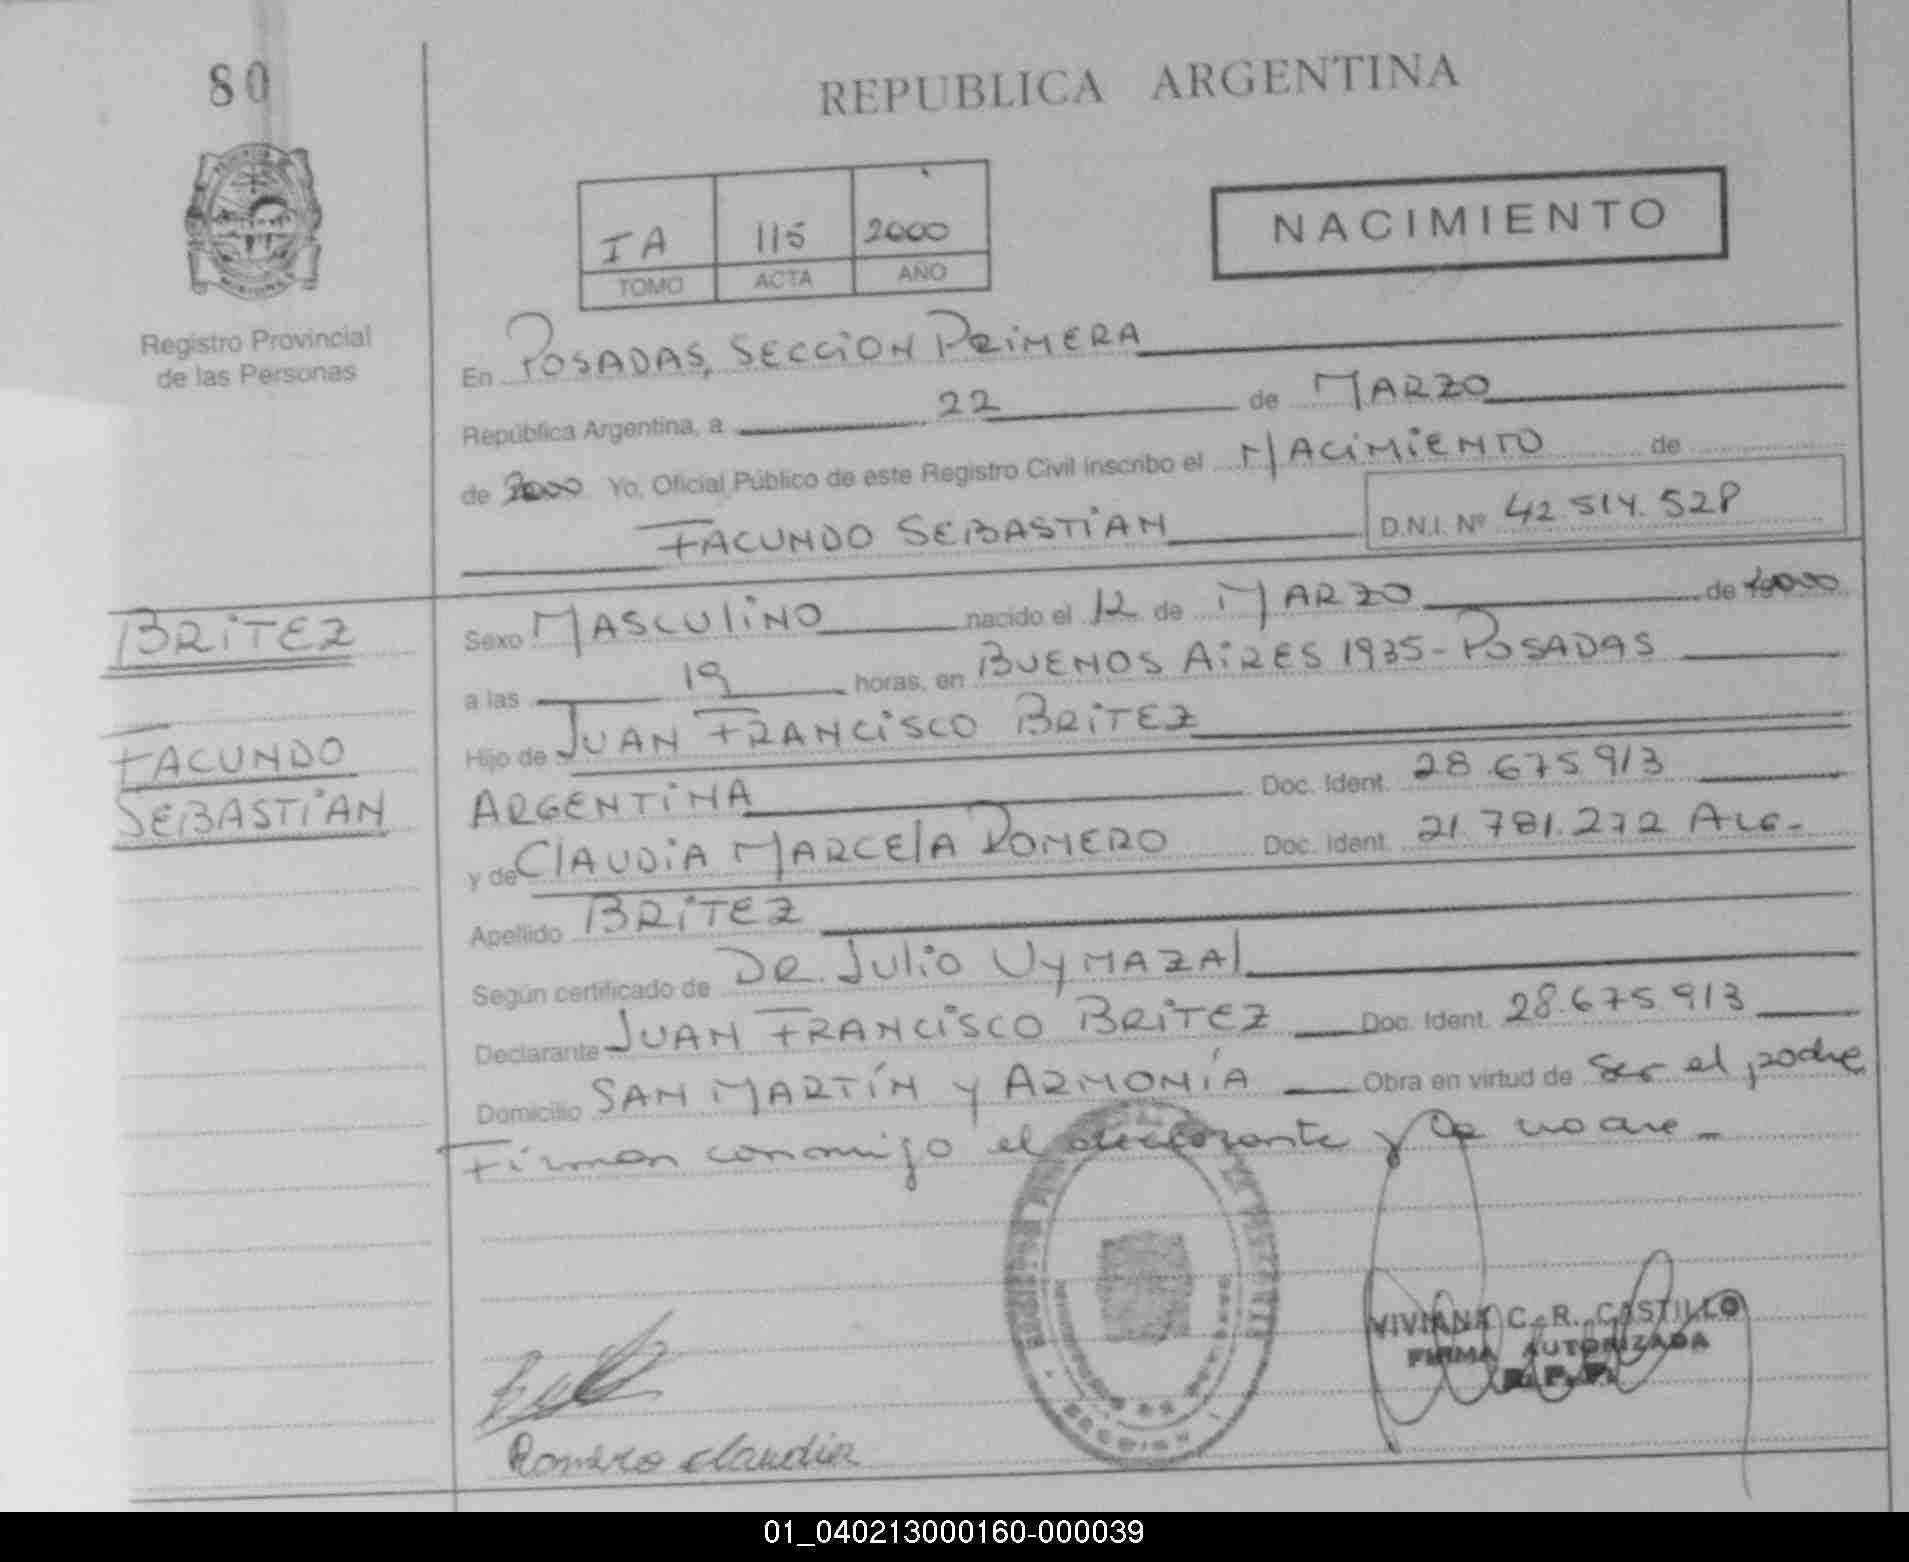 80
REPUBLICA ARGENTINA
IA 115 2000
TOMO ACTA AÑO
NACIMIENTO
Registro Provincial
de las Personas
En POSADAS, SECCION PRIMERA
República Argentina, a 22 de MARZO
de 2000 Yo, Oficial Público de este Registro Civil inscribo el NACIMIENTO de
FACUNDO SEBASTIAN D.N.I. Nº 42.514.528
BRITEZ
FACUNDO
SEBASTIAN
Sexo MASCULINO nacido el 12 de MARZO de 2000
a las 19 horas, en BUENOS AIRES 1935 - POSADAS
Hijo de JUAN FRANCISCO BRITEZ
ARGENTINA Doc. Ident. 28.675.913
y de CLAUDIA MARCELA ROMERO Doc. Ident. 21.781.272 ARG-
Apellido BRITEZ
Según certificado de DR. JULIO VYMAZAL
Declarante JUAN FRANCISCO BRITEZ Doc. Ident. 28.675.913
Domicilio SAN MARTÍN Y ARMONÍA Obra en virtud de ser el padre
Firman conmigo el declarante y la madre -
VIVIANA C. R. CASTILLO
FIRMA AUTORIZADA
R.P.P.
Romero Claudia
01_040213000160-000039